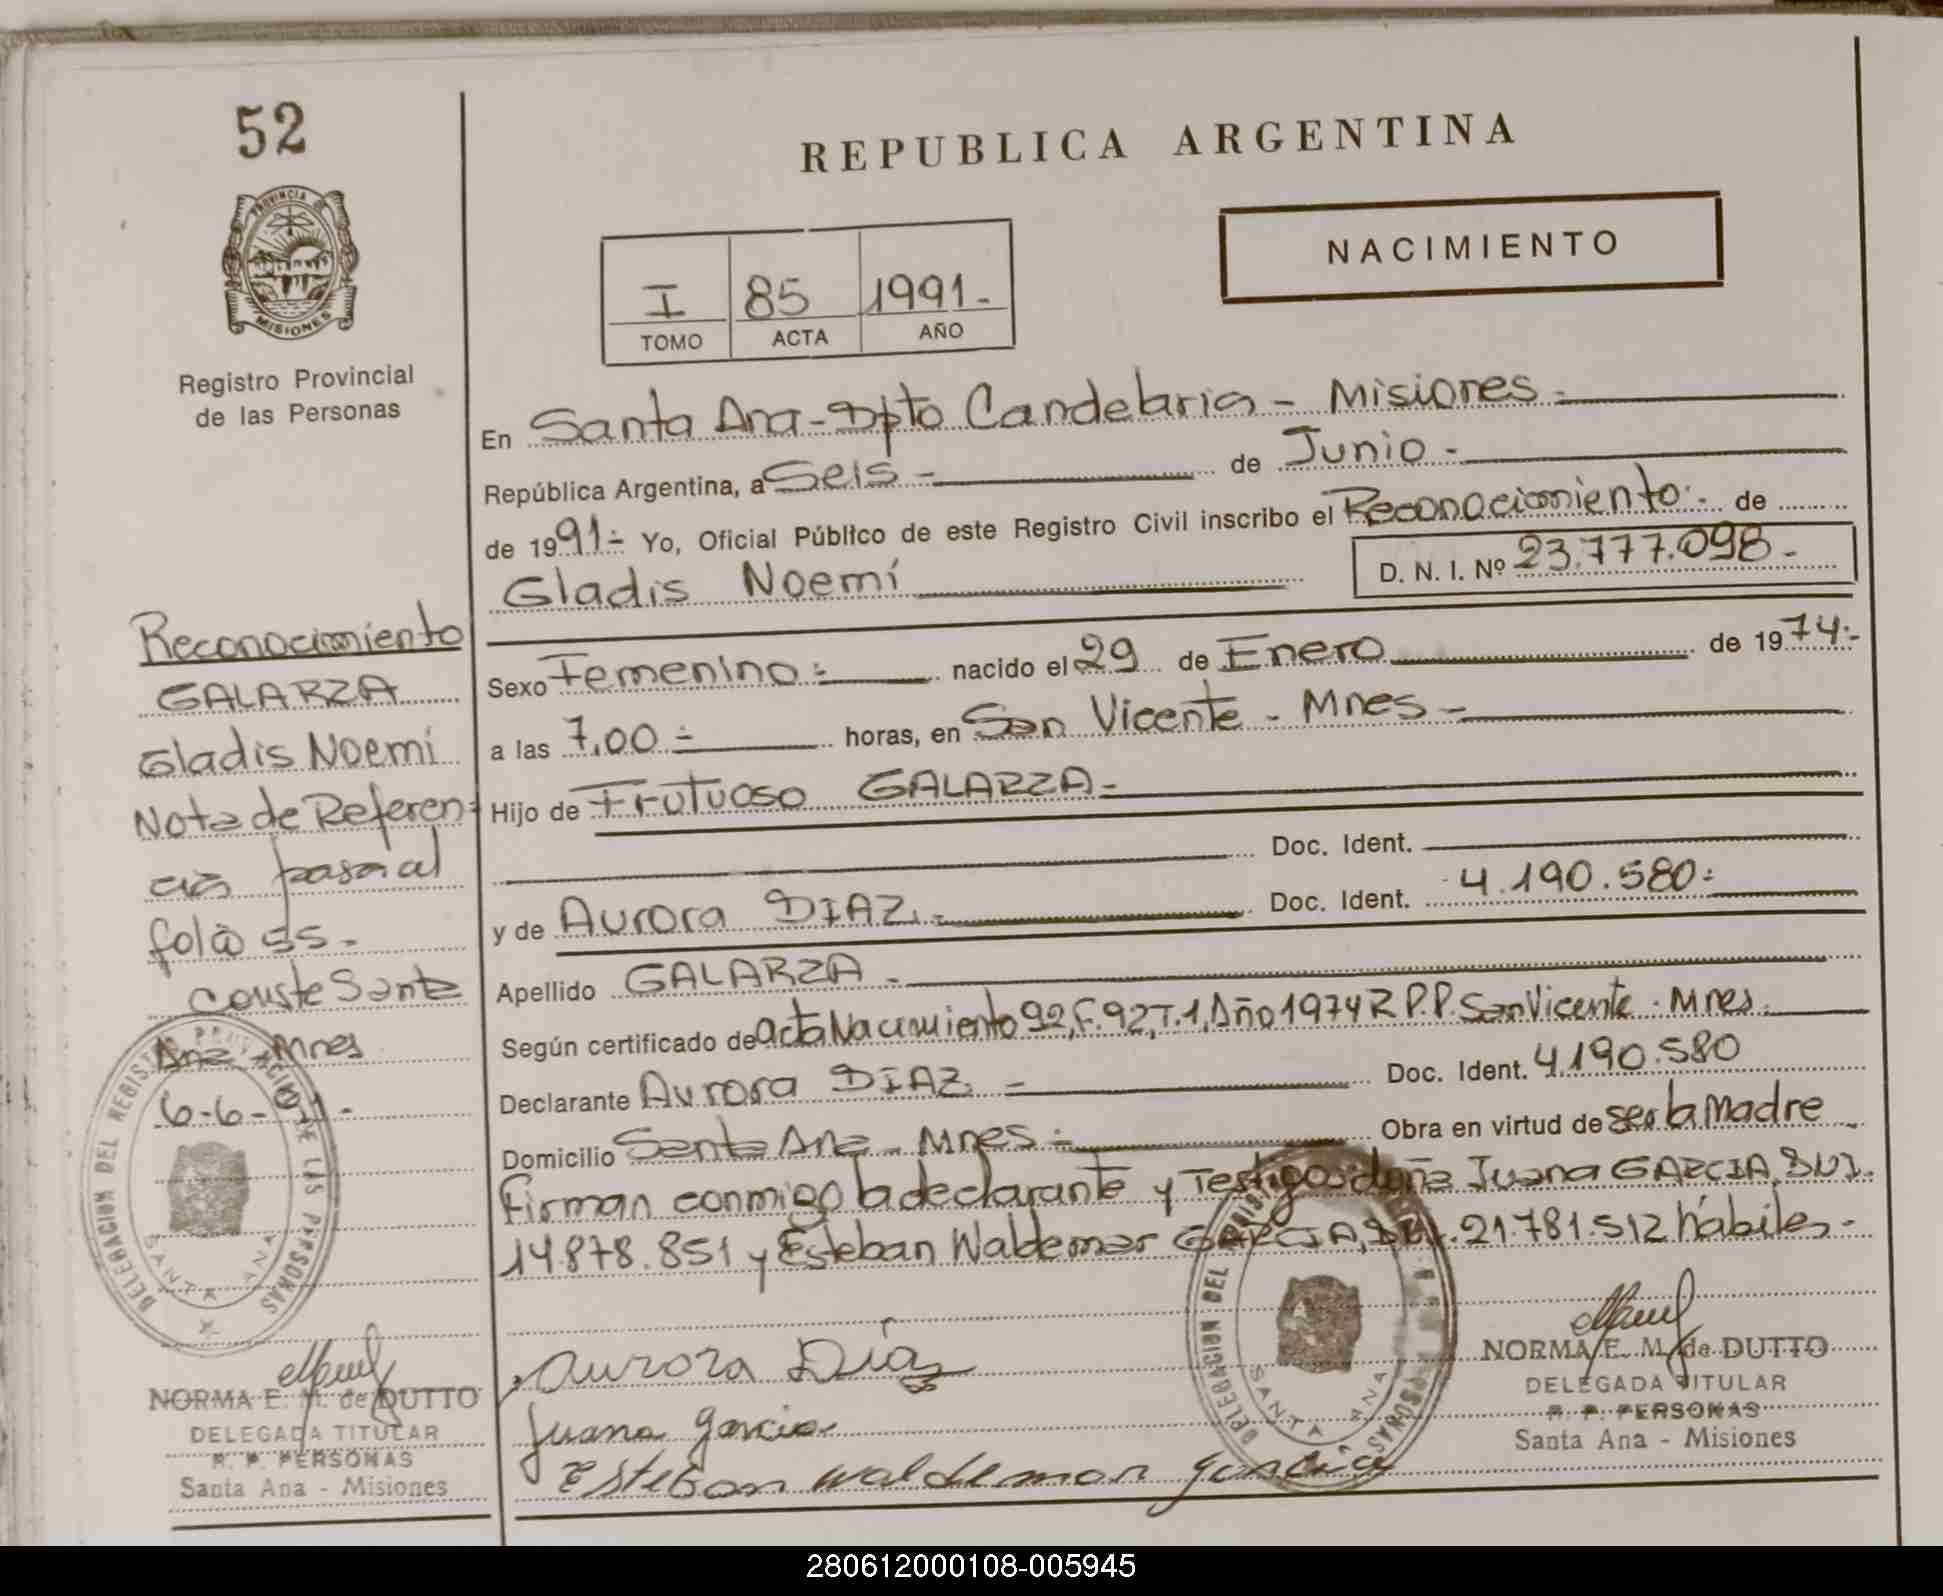 52
PROVINCIA DE
MISIONES
Registro Provincial
de las Personas
REPUBLICA ARGENTINA
NACIMIENTO
I 85 1991.-
TOMO ACTA AÑO
En Santa Ana - Dpto Candelaria - Misiones.-
República Argentina, a Seis - de Junio -
de 1991.- Yo, Oficial Público de este Registro Civil inscribo el Reconocimiento.- de
Gladis Noemí D. N. I. Nº 23.777.098.-
Sexo Femenino.- nacido el 29 de Enero de 1974.-
a las 7,00.- horas, en San Vicente - Mnes -
Hijo de Frutuoso GALARZA.-
Doc. Ident.
y de Aurora DIAZ.- Doc. Ident. 4.190.580.-
Apellido GALARZA -
Según certificado de acta Nacimiento 92, F. 92, T. 1, Año 1974 R.P.P. San Vicente - Mnes.
Declarante Aurora DIAZ - Doc. Ident. 4.190.580
Domicilio Santa Ana - Mnes.- Obra en virtud de ser la Madre
Firman conmigo la declarante y Testigos doña Juana GARCIA, DNI.
14.878.851 y Esteban Waldemar GARCIA, DNI. 21.781.512 hábiles.-
Aurora Díaz
Juana garcia
Esteban waldemar garcia
NORMA E. M. de DUTTO
DELEGADA TITULAR
R. P. PERSONAS
Santa Ana - Misiones
DELEGACION DEL REGISTRO
SANTA ANA
Reconocimiento
GALARZA
Gladis Noemí
Nota de Referen-
cia pasa al
folio 55.-
conste Santa
Ana - Mnes
6-6-91.-
DELEGACION DEL REGISTRO PROVINCIAL DE LAS PERSONAS
SANTA ANA
NORMA E. M. de DUTTO
DELEGADA TITULAR
R. P. PERSONAS
Santa Ana - Misiones
280612000108-005945